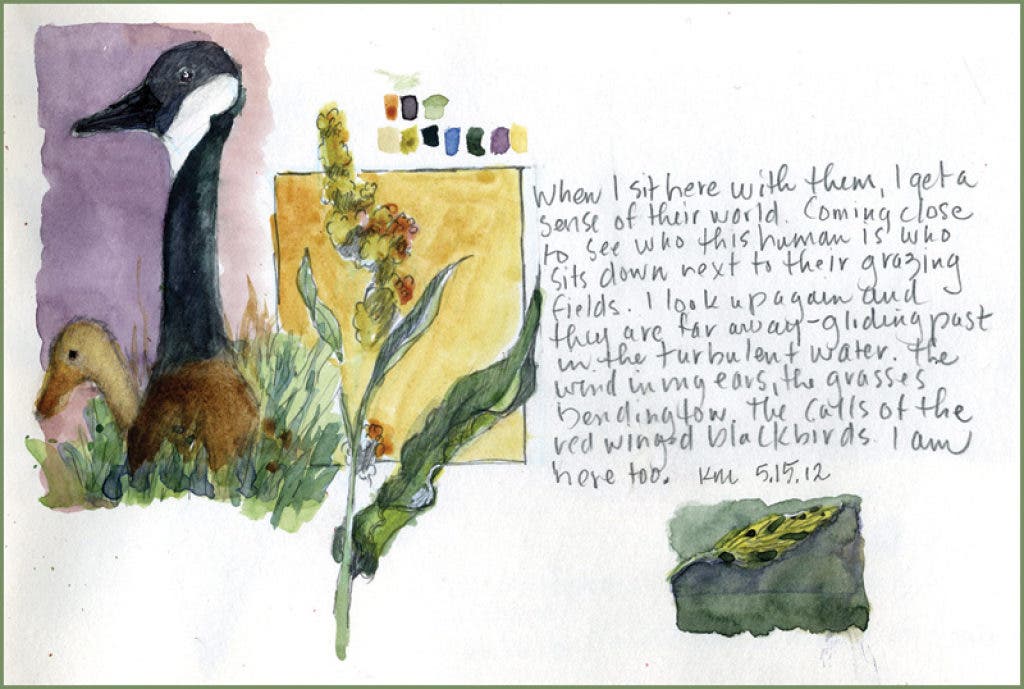 When I sit here with them, I get a
sense of their world. Coming close
to see who this human is who
sits down next to their grazing
fields. I look up again and
they are far away-gliding past
in the turbulent water. The
wind in my ears, the grasses
bending low. The calls of the
red winged blackbirds. I am
here too. KM 5.15.12